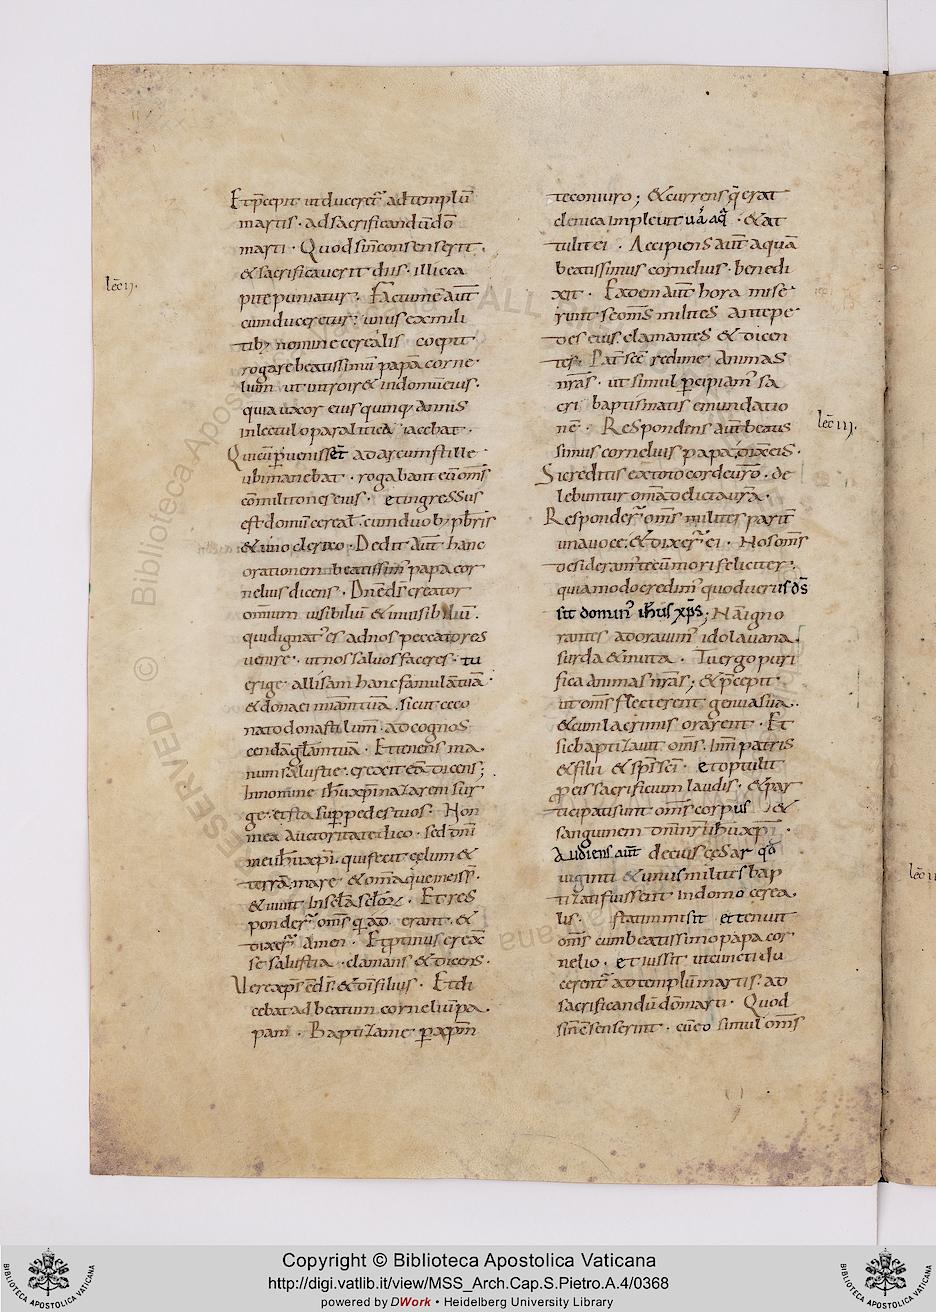 Et p̄cepit ut ducerer̄ ad templū
martis · ad sacrificandū dō
marti · Quod si n̄ consenserit ·
& sacrificaverit diis · illic ca
pite puniatur · Factum ē aut̄
cum duceretur ; unus ex mili
tib; nomine cerealis coepit
rogare beatissimū papā corne
lium ut introir& in domū eius ·
quia uxor eius quinq; annis
in lectulo paralitica iacebat ·
Qui cū p̄venisset ad arcum stille
ubi manebat · rogabant eū om̄s
cōmilitones eius · et ingressus
est domū cereal̄ · cum duob; p̄br̄is
& uno clerico · Dedit aut̄ hanc
orationem beatissim̄ papa cor
nelius dicens · Dn̄e dr̄ creator
omnium visibiliū & invisibiliū ·
qui dignat' es ad nos peccatores
venire · ut nos salvos faceres · tu
erige allisam hanc famulā tuā ·
& dona ei mīam tuā · sicut ceco
nato donasti lum̄ · ad cognos
cendā gl̄am tuā · Et tenens ma
num salustie · erexit eā dicens ;
In nomine ih̄u xp̄i nazareni sur
ge · et sta sup̄ pedes tuos · Non
mea auctoritate dico · sed dn̄i
mei ih̄u xp̄i · qui fecit celum &
terrā · mare & om̄a que in eis s̄ ·
Et res
ponder̄ om̄s q̄ ad erant · &
dixer̄ Amen · Et p̄tinus erexc̄
se salustia · clamans & dicens ·
Vere xp̄s ē ds̄ · & dī filius · Et di
cebat ad beatum corneliū pa
pam · Baptiza me p̄ xp̄m
lec̄ ij ·
te coniuro ; & currens q̄ erat
clenica implevit vā aq̄ · & at
tulit ei · Accipiens aut̄ aquā
beatissimus cornelius · benedi
xit · Eadem aut̄ hora mise
runt se om̄s milites ante pe
des eius · clamantes & dicen
tes · Pat̄ sc̄e redime animas
nr̄as · ut simul p̄cipiam' sa
cri baptismatis emundatio
nē · Respondens aut̄ beatis
simus cornelius papa · dixit eis ·
Si creditis ex toto corde vr̄o · de
lebuntur om̄a delicta vr̄a ·
Responder̄ om̄s milites parit̄
una voce · & dixer̄ ei · Nos om̄s
desideram' tecū mori feliciter ·
quia modo credim' quod verus ds̄
sit domin' ih̄us xp̄s ; Nā igno
rantes adoravim' idola vana ·
surda & muta · Tu ergo puri
fica animas nr̄as ; & p̄cepit
ut om̄s flecterent genua sua ·
& cum lacrimis orarent · Et
sic baptizavit om̄s · In n̄ patris
& filii & sp̄s sc̄i · et optulit
p̄ eis sacrificium laudis · & par
ticipati sunt om̄s corpus &
sanguinem dn̄i nr̄i ih̄u xp̄i ·
Audiens aut̄ decius cesar qd̄
viginti & unus milites bap
tizati fuissent in domo cerea
lis · statim misit et tenuit
om̄s cum beatissimo papa cor
nelio · et iussit ut cuncti du
cerent' ad templū martis · ad
sacrificandū dō marti · Quod
si n̄ c̄senserint · cū eo simul om̄s
lec̄ iij ·
Copyright © Biblioteca Apostolica Vaticana
http://digi.vatlib.it/view/MSS_Arch.Cap.S.Pietro.A.4/0368
powered by DWork • Heidelberg University Library